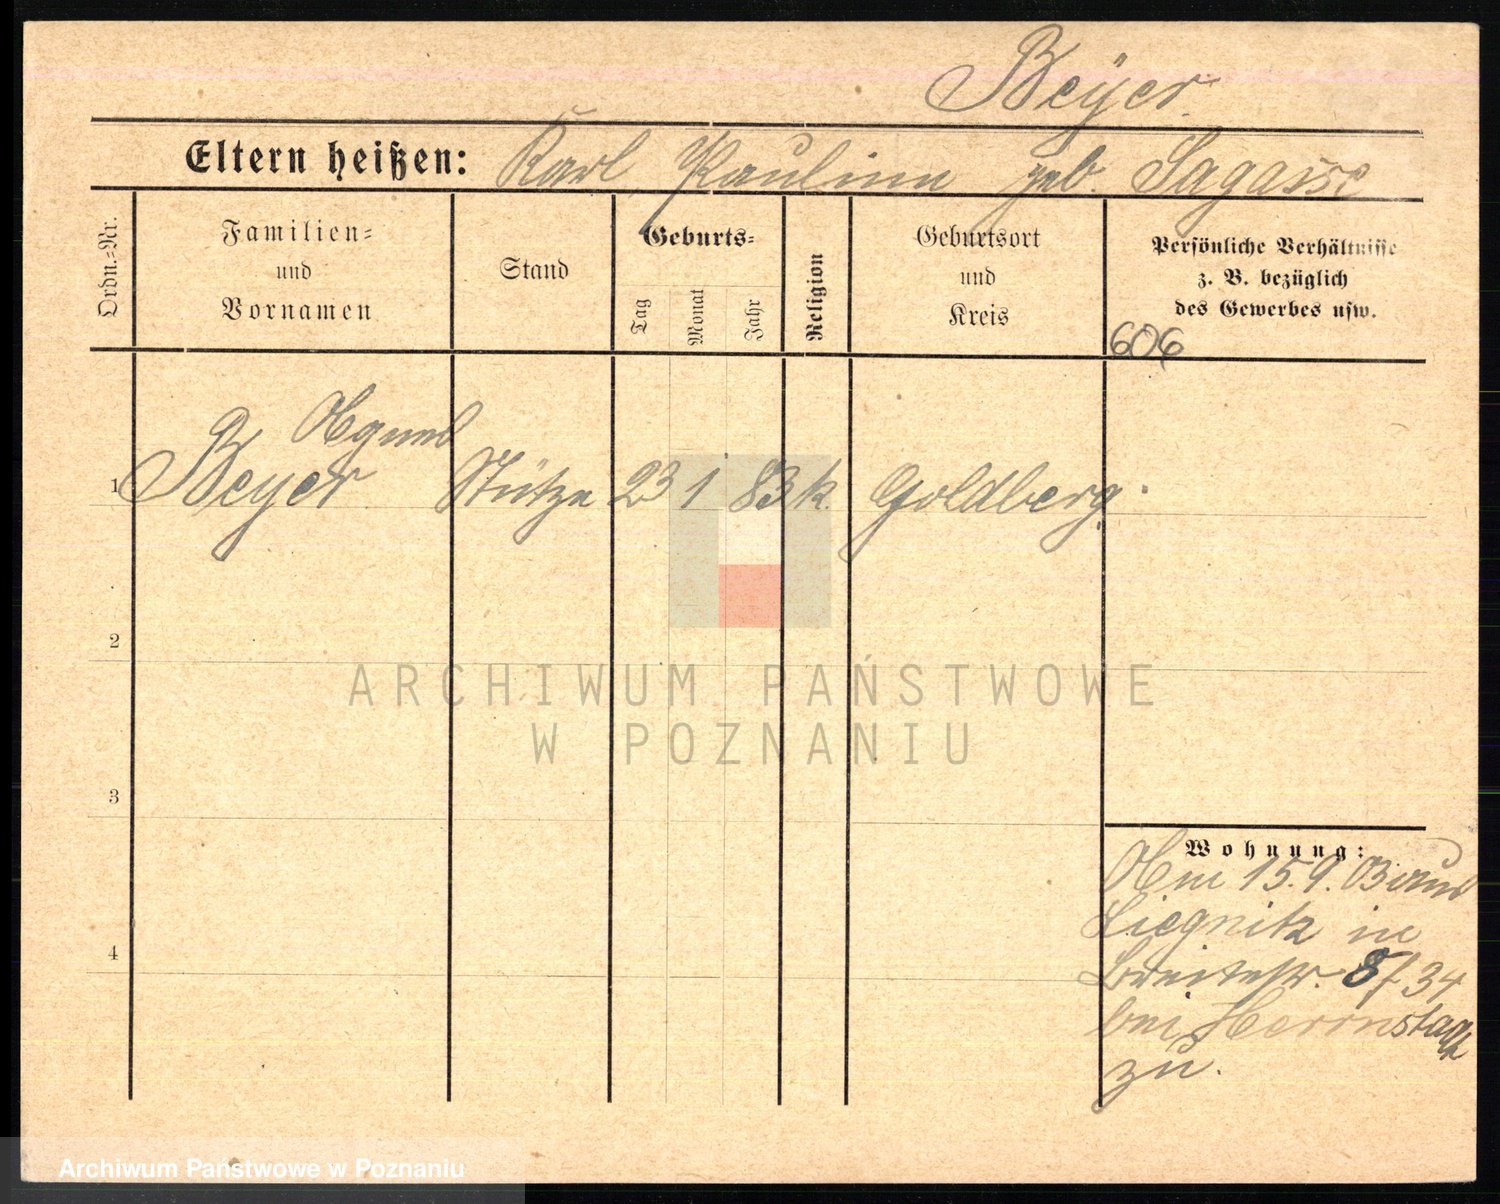 Beyer
Eltern heißen: Karl, Pauline geb. Sagasse
Ordn.-Nr.
Familien-
und
Vornamen
Stand
Geburts-
Tag
Monat
Jahr
Religion
Geburtsort
und
Kreis
Persönliche Verhältnisse
z. B. bezüglich
des Gewerbes usw.
606
1 Beyer Stütze 23 1 83 k. Goldberg.
2
3
4
Wohnung:
Am 15.9.03 aus
Liegnitz in
Breitestr. 8/34
bei
zu.
ARCHIWUM PAŃSTWOWE
W POZNANIU
Archiwum Państwowe w Poznaniu